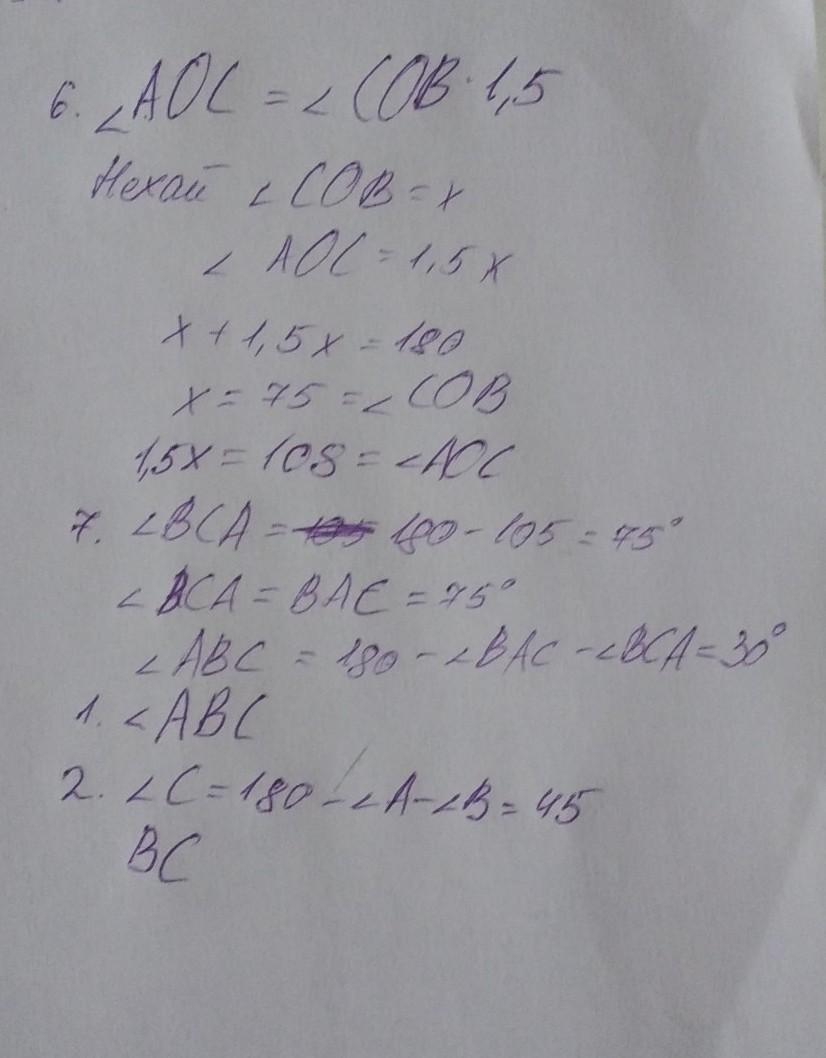 6. ∠AOC = ∠COB · 1,5
Нехай ∠COB = x
∠ AOC = 1,5x
x + 1,5x = 180
x = 75 = ∠COB
1,5x = 108 = ∠AOC
7. ∠BCA = 180 - 105 = 75°
∠BCA = BAC = 75°
∠ABC = 180 - ∠BAC - ∠BCA = 30°
1. ∠ABC
2. ∠C = 180 - ∠A - ∠B = 45
BC